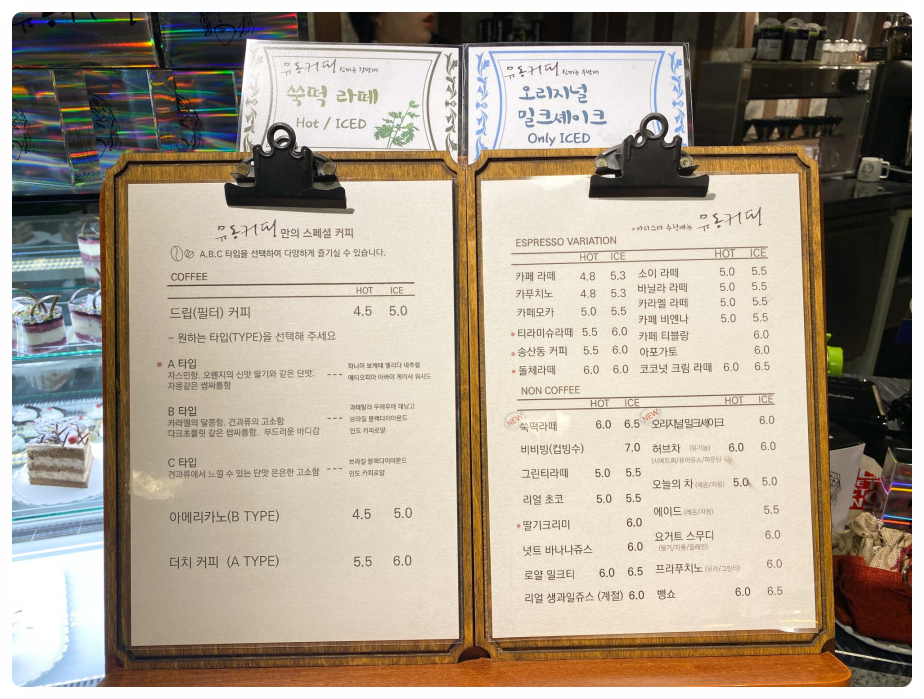 유동커피
쑥떡 라떼
Hot / ICED
유동커피
오리지널
밀크셰이크
Only ICED
유동커피만의 스페셜 커피
A.B.C 타입을 선택하여 다양하게 즐기실 수 있습니다.
COFFEE
HOT ICE
드립(필터) 커피 4.5 5.0
– 원하는 타입(TYPE)을 선택해 주세요
A 타입
자스민향, 오렌지의 신맛 딸기와 같은 단맛.
자몽같은 쌉싸름함
파나마 보케테 엘리다 네추럴
에티오피아 아바야 게이샤 워시드
B 타입
카라멜의 달콤함, 견과류의 고소함
다크초콜릿 같은 쌉싸름함. 부드러운 바디감
과테말라 우에우에 테낭고
브라질 블랙다이아몬드
인도 카피로얄
C 타입
견과류에서 느낄 수 있는 단맛 은은한 고소함
브라질 블랙다이아몬드
인도 카피로얄
아메리카노(B TYPE) 4.5 5.0
더치 커피 (A TYPE) 5.5 6.0
바리스타 추천메뉴 유동커피
ESPRESSO VARIATION
HOT ICE HOT ICE
카페 라떼 4.8 5.3 소이 라떼 5.0 5.5
카푸치노 4.8 5.3 바닐라 라떼 5.0 5.5
카페모카 5.0 5.5 카라멜 라떼 5.0 5.5
카페 비엔나 5.0 5.5
티라미슈라떼 5.5 6.0 카페 티블랑 6.0
송산동 커피 5.5 6.0 아포가토 6.0
돌체라떼 6.0 6.0 코코넛 크림 라떼 6.0 6.5
NON COFFEE
HOT ICE HOT ICE
NEW 쑥떡라떼 6.0 6.5 NEW 오리지널밀크셰이크 6.0
비비빙(컵빙수) 7.0 허브차 (유기농) 6.0 6.0
그린티라떼 5.0 5.5 오늘의 차 (레몬/자몽) 5.0 5.0
리얼 초코 5.0 5.5 에이드 (레몬/자몽) 5.5
딸기크리미 6.0 요거트 스무디 6.0
(딸기/자몽/플레인)
넛트 바나나쥬스 6.0
로얄 밀크티 6.0 6.5 프라푸치노 (모카/그린티) 6.0
리얼 생과일쥬스 (계절) 6.0 뱅쇼 6.0 6.5